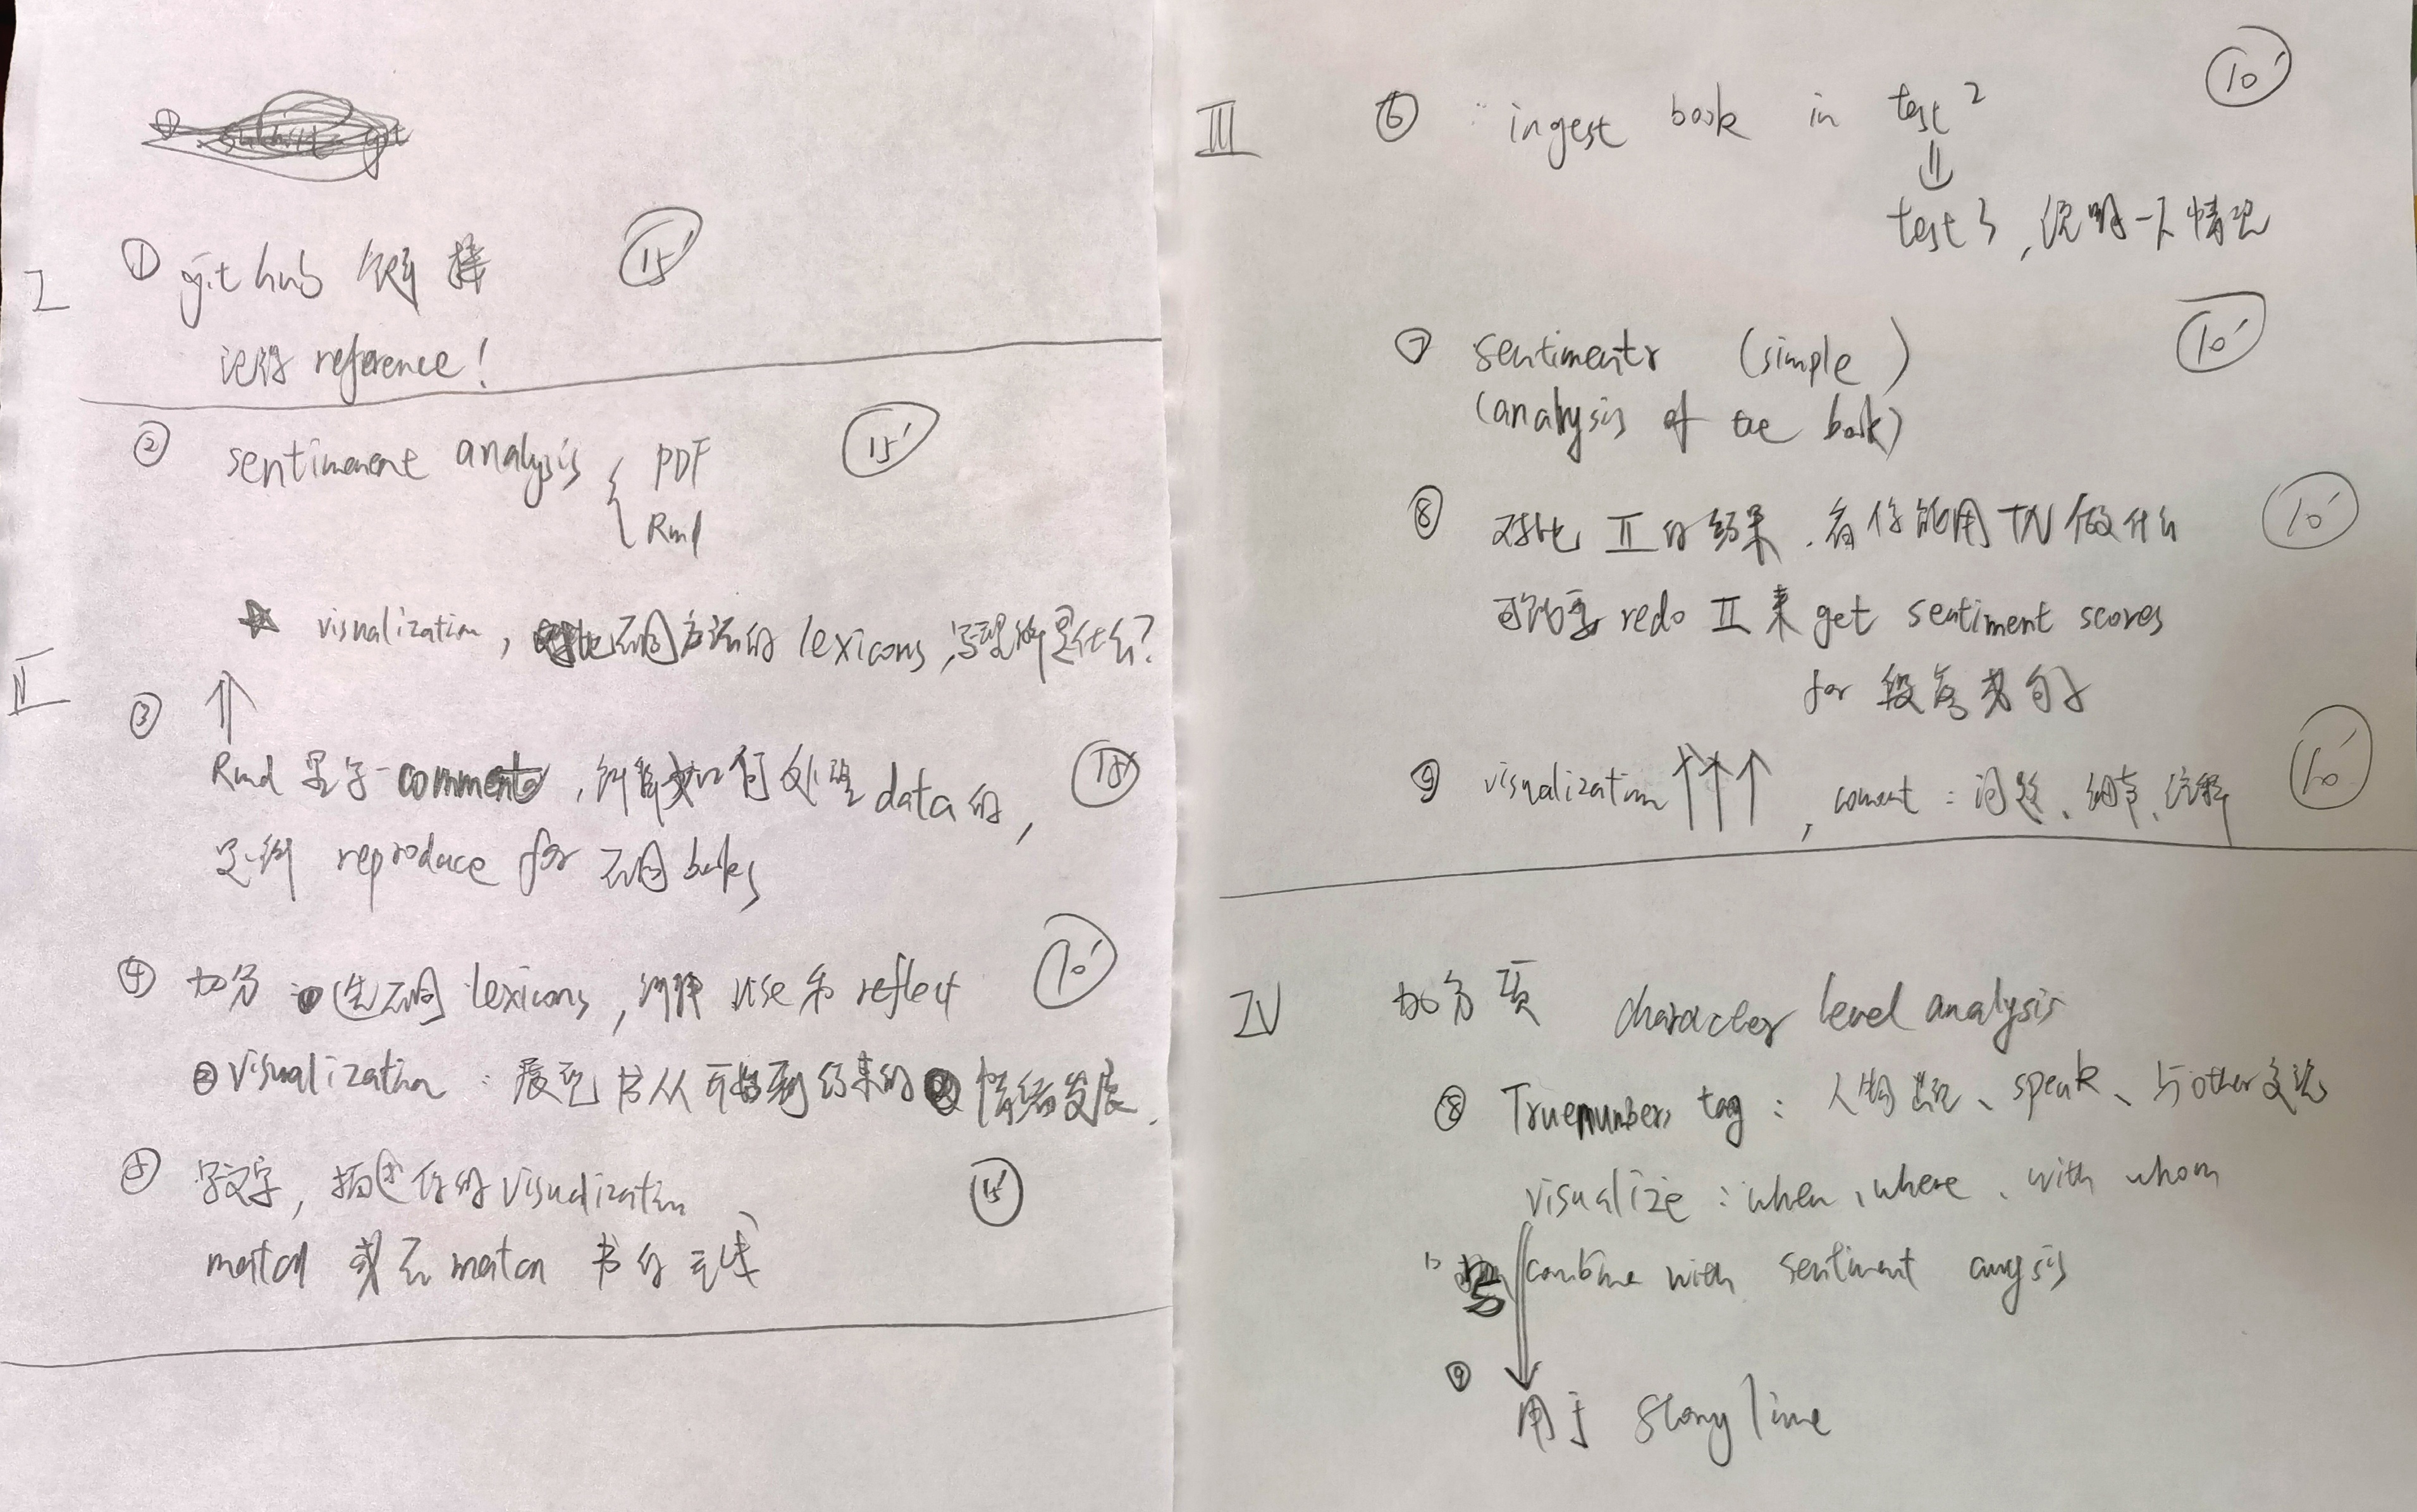 I ① github 链接 15'
记得 reference!
② sentiment analysis { PDF 15'
Rmd
☆ visualization, 对比不同方法的 lexicons, 实现的是什么?
II
③ ⇑
Rmd 里写 comments, 解释如何处理 data 的,
reproduce for 不同 books
④ 加分 选不同 lexicons, 解释 use 和 reflect 10'
② visualization: 展现书从开始到结束的 情绪发展.
⑤ 写文字, 描述你的 visualization 15'
match 或不 match 书的主线
III ⑥ ingest book in test 2 10'
⇓
test 3, 说明一下情况
⑦ sentimentr (simple) 10'
(analysis of the book)
⑧ 对比 II 的结果. 看你能用 TN 做什么 10'
可能要 redo II 来 get sentiment scores
for 段落或句子
⑨ visualization ↑↑↑, coment: 问题、细节、注释 10'
IV 加分项 character level analysis
⑧ Truenumbers tag: 人物出现、speak、与 other 交流
visualize: when、where、with whom
combine with sentiment angsis
⑨
用于 Story line